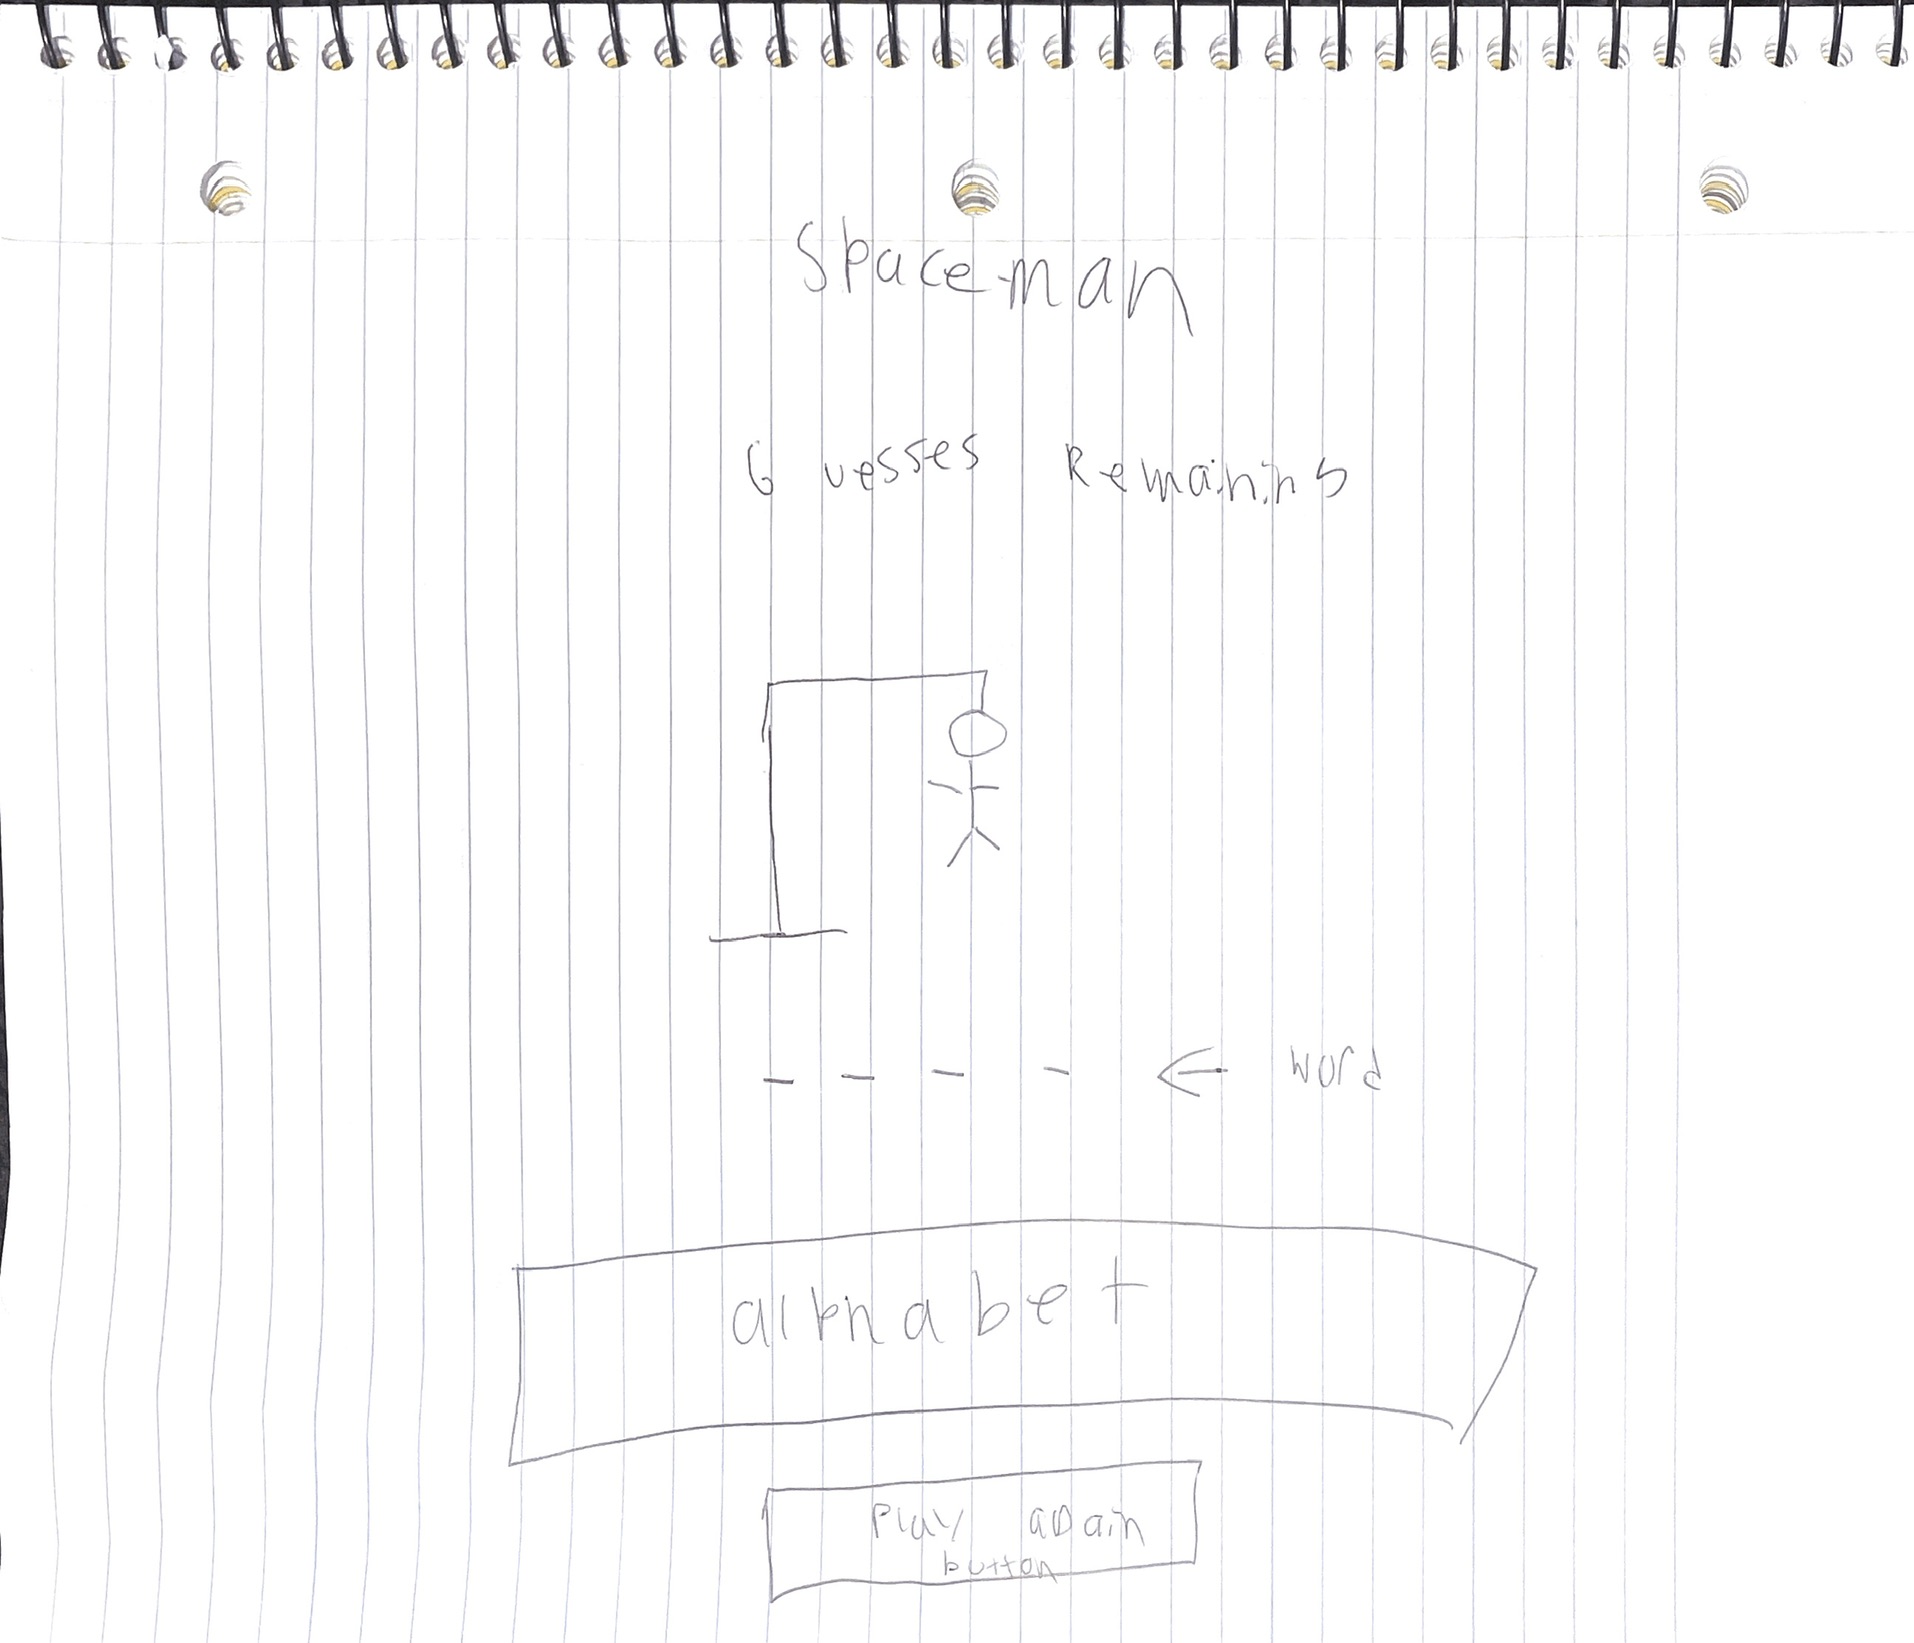 Spaceman
Guesses Remaining
← word
alphabet
Play again
button